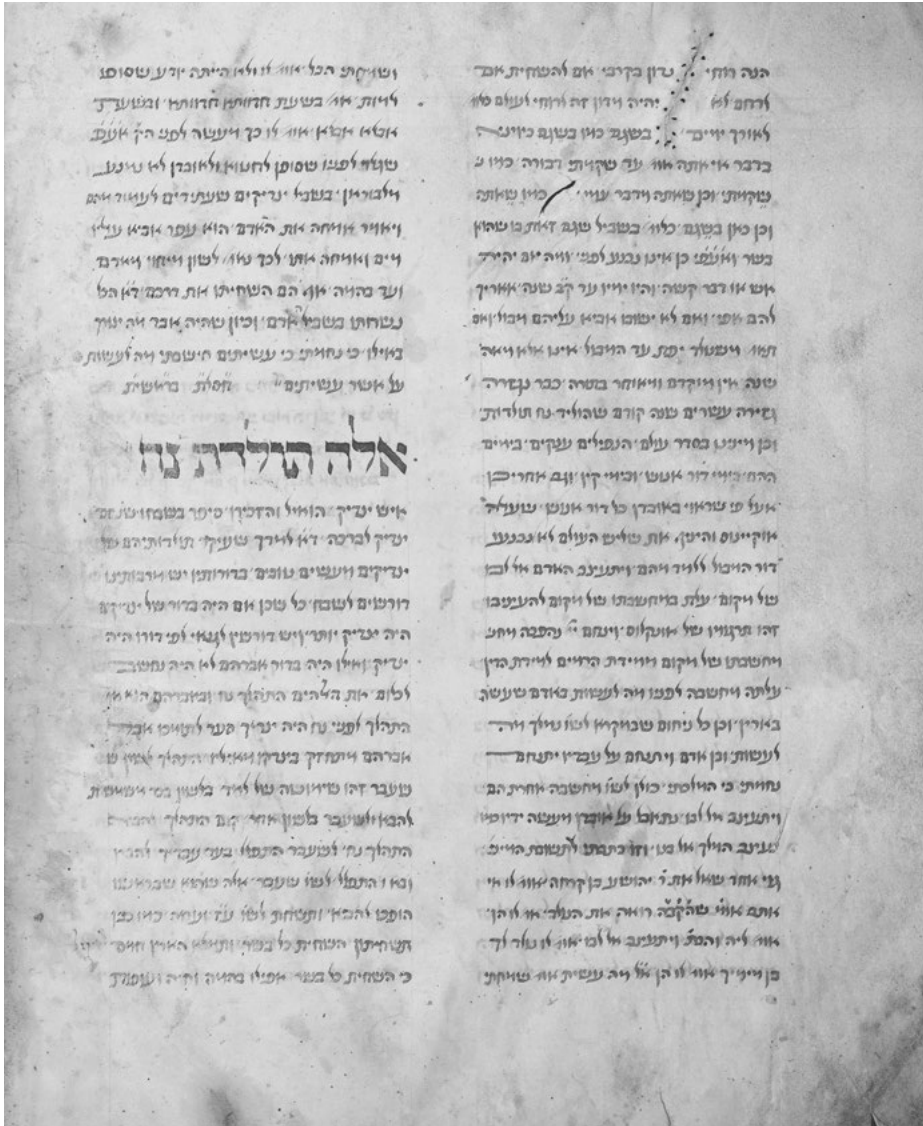 הנה רוחי נדון בקרבי אם להשחית אם
לרחם לא יהיה מדון זה לרוחי לעולם כלו
לאורך ימים בשגם כמו בשגם כלומ
בדבר אי אתה או עד שקמתי דבורה כמו
שקמתי וכן שאתה מדבר עמי כמו שאתה
וכן כאן בשגם כלו בשביל שגם זאת בו שהוא
בשר ואעפ כן אינו נכנע לפני ומה אם יהיה
אש או דבר קשה והיו ימיו עד קכ שנה אאריך
להם אפי ואם לא ישובו אביא עליהם מבול ואם
תאמ משנולד יפת עד המבול אינו אלא מאה
שנה אין מוקדם ומאוחר בתורה כבר נגזרה
גזירה עשרים שנה קודם שהוליד נח תולדות
וכן מצינו בסדר עולם הנפילים ענקים בימים
ההם בימי דור אנוש ובימי קין וגם אחרי כן
אעל פי שראו באובדן כל דור אנוש שעלה
אוקיינוס והציף את שליש העולם לא נכנע
דור המבול ללמד מהם ויתעצב האדם אל לבו
של מקום עלת במחשבתו של מקום להעציבו
זהו תרגומו של אונקלוס וינחם יי נהפכה מחש
מחשבתו של מקום ממידת הרחמים למידת הדין
עלתה מחשבה לפניו מה לעשות באדם שעשה
בארץ וכן כל ניחום שבמקרא לשו נמלך מה
לעשות ובן אדם ויתנחם על עבדיו יתנחם
נחמתי כי המלכתי כולן לשו מחשבה אחרת הם
ויתעצב אל לבו נתאבל על אובדן מעשה ידיו כמו
נעצב המלך אל בנו וזו כתבתי לתשובת המינ
גוי אחד שאל את ר יהושע בן קרחה אמ לו אי
אתם אומ שהקבה רואה את הנולד אמ לו הן
אמ ליה והכת ויתעצב אל לבו אמ לו נולד לך
בן מימיך אמ לו הן אל מה עשית אמ שמחתי
ושימחתי הכל אמ לו ולא הייתה יודע שסופו
למות אמ בשעת חדוותא חדוותא ובשעת
אבלא אבלא אמ לו כך מעשה לפני הק אעפ
שגלוי לפניו שסופן לחטוא ולאובדן לא נמנע
מלבוראן בשביל צדיקים שעתידים לעמוד מהם
ויאמר אמחה את האדם הוא עפר אביא עליו
מים ואמחה אותו לכך נאמ לשון מיחוי מאדם
ועד בהמה אף הם השחיתו את דרכם דא הכל
נבראו בשביל אדם וכיון שהיה אבד מה צורך
באילו כי נחמתי כי עשיתים חישבתי מה לעשות
על אשר עשיתים חסלת בראשית
אלה תולדת נח
איש צדיק הואיל והזכירו סיפר בשבחו שנאמ
צדיק לברכה דא ללמדך שעיקר תולדותיהם של
צדיקים מעשים טובים בדורותיו יש מרבותינו
דורשים לשבח כל שכן אם היה בדור של צדיקים
היה צדיק יותר ויש דורשין לגנאי לפי דורו היה
צדיק ואילו היה בדור אברהם לא היה נחשב
לכלום את האלהים התהלך נח ובאברהם הוא או
התהלך לפני נח היה צריך סעד לתומכו אבל
אברהם מתחזק בצדקו מאיליו התהלך לשון ש
שעבר זהו שימושה של למד בלשון כבד משמשת
להבא ולשעבר בלשון אחד קום התהלך להבא
התהלך נח לשעבר התפלל בעד עבדיך להבא
ובא והתפלל לשו שעבר אלא שהוא שבראשו
הופכו להבא ותשחת לשו עז וערוה כמו כבן
תשחיתון השחית כל בשר ותמלא הארץ חמס
כי השחית כל בשר אפילו בהמה וחיה ועופות